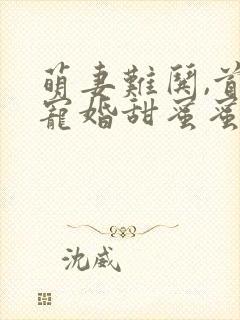 萌妻難鬥,首
寵婚甜蜜蜜
沈威